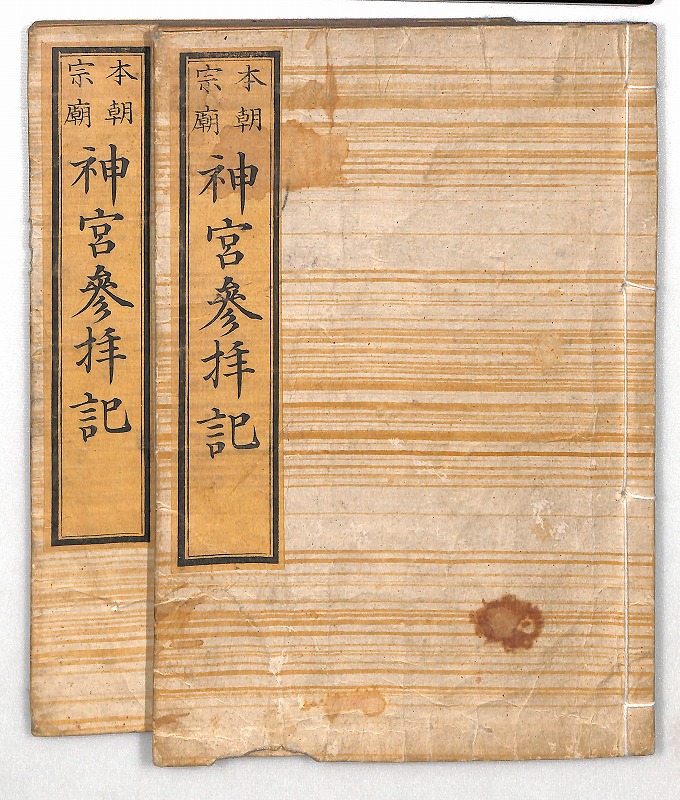 本朝
宗廟
神宮參拝記
本朝
宗廟
神宮參拝記